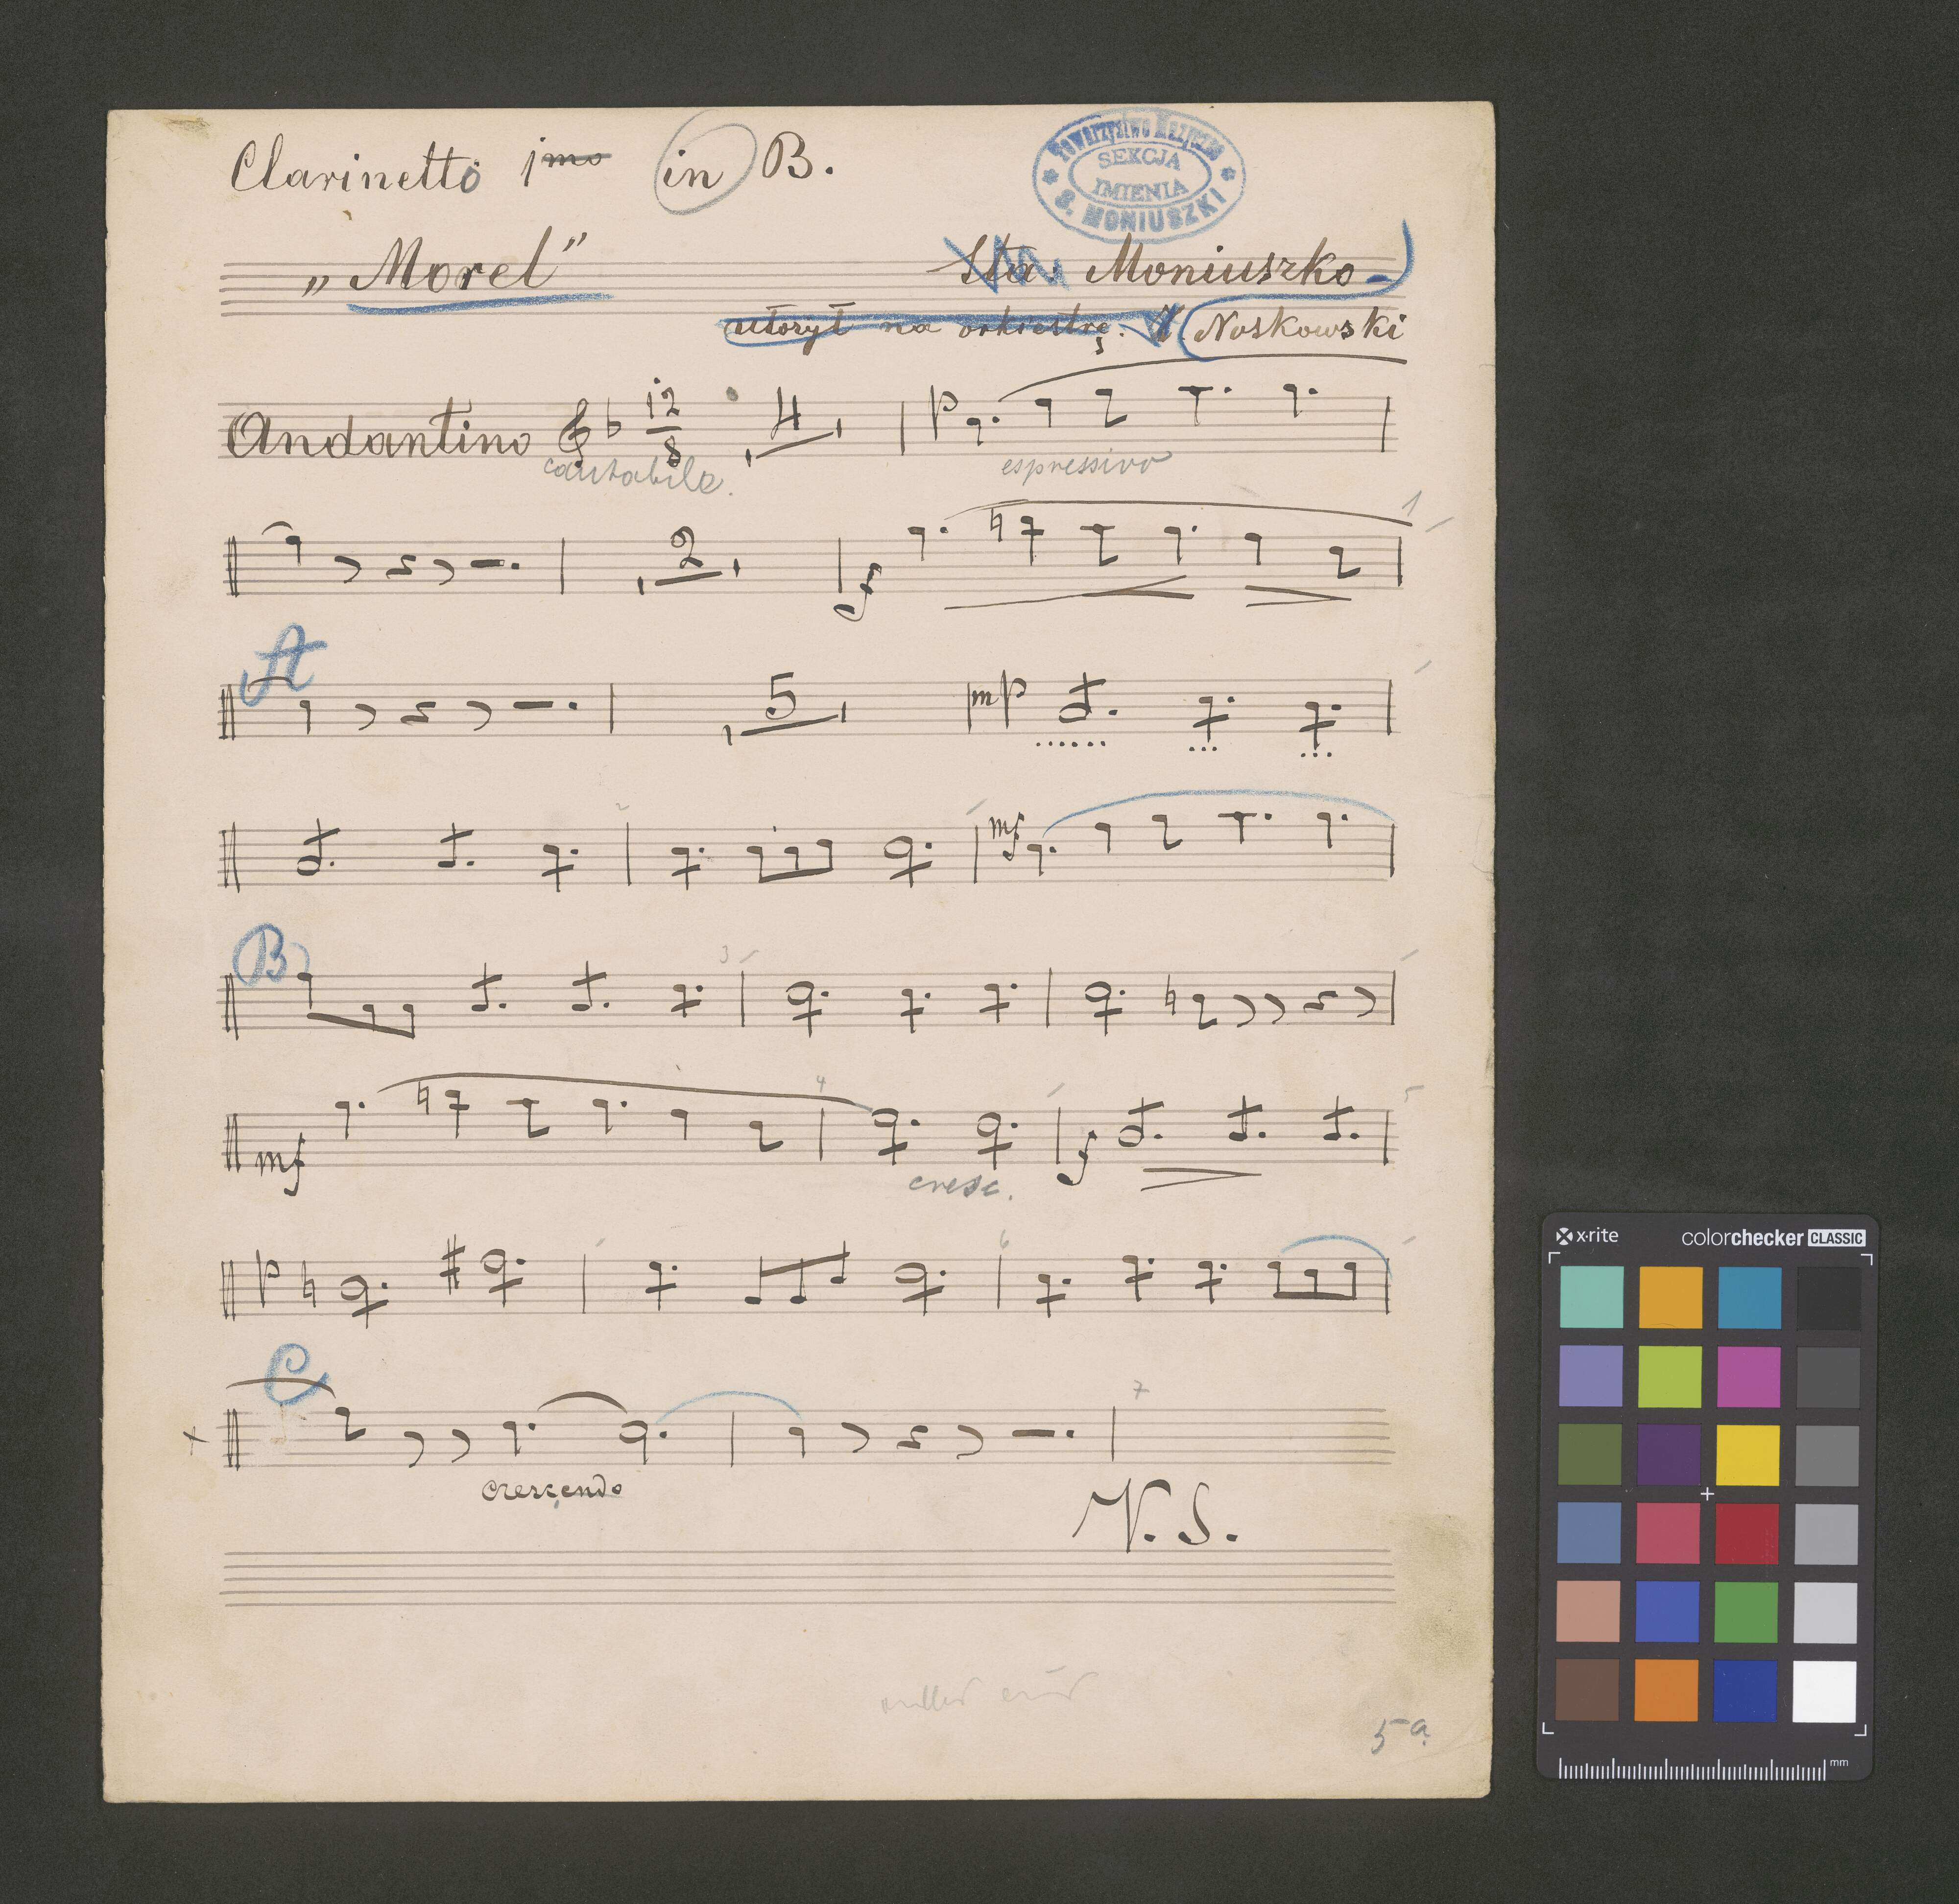 Clarinetto 1mo in B.
TOWARZYSTWO MUZYCZNE
SEKCJA
IMIENIA
S. MONIUSZKI
„Morel”
Sta. Moniuszko
ułożył na orkiestrę. Z. Noskowski
Andantino 12/8 4 p
cantabile. espressivo
2 f 1
A
5 mp
2 mf
B 3
mf 4 5
cresc. f
p 6
C 7
crescendo
V. S.
5a
x-rite colorchecker CLASSIC
mm